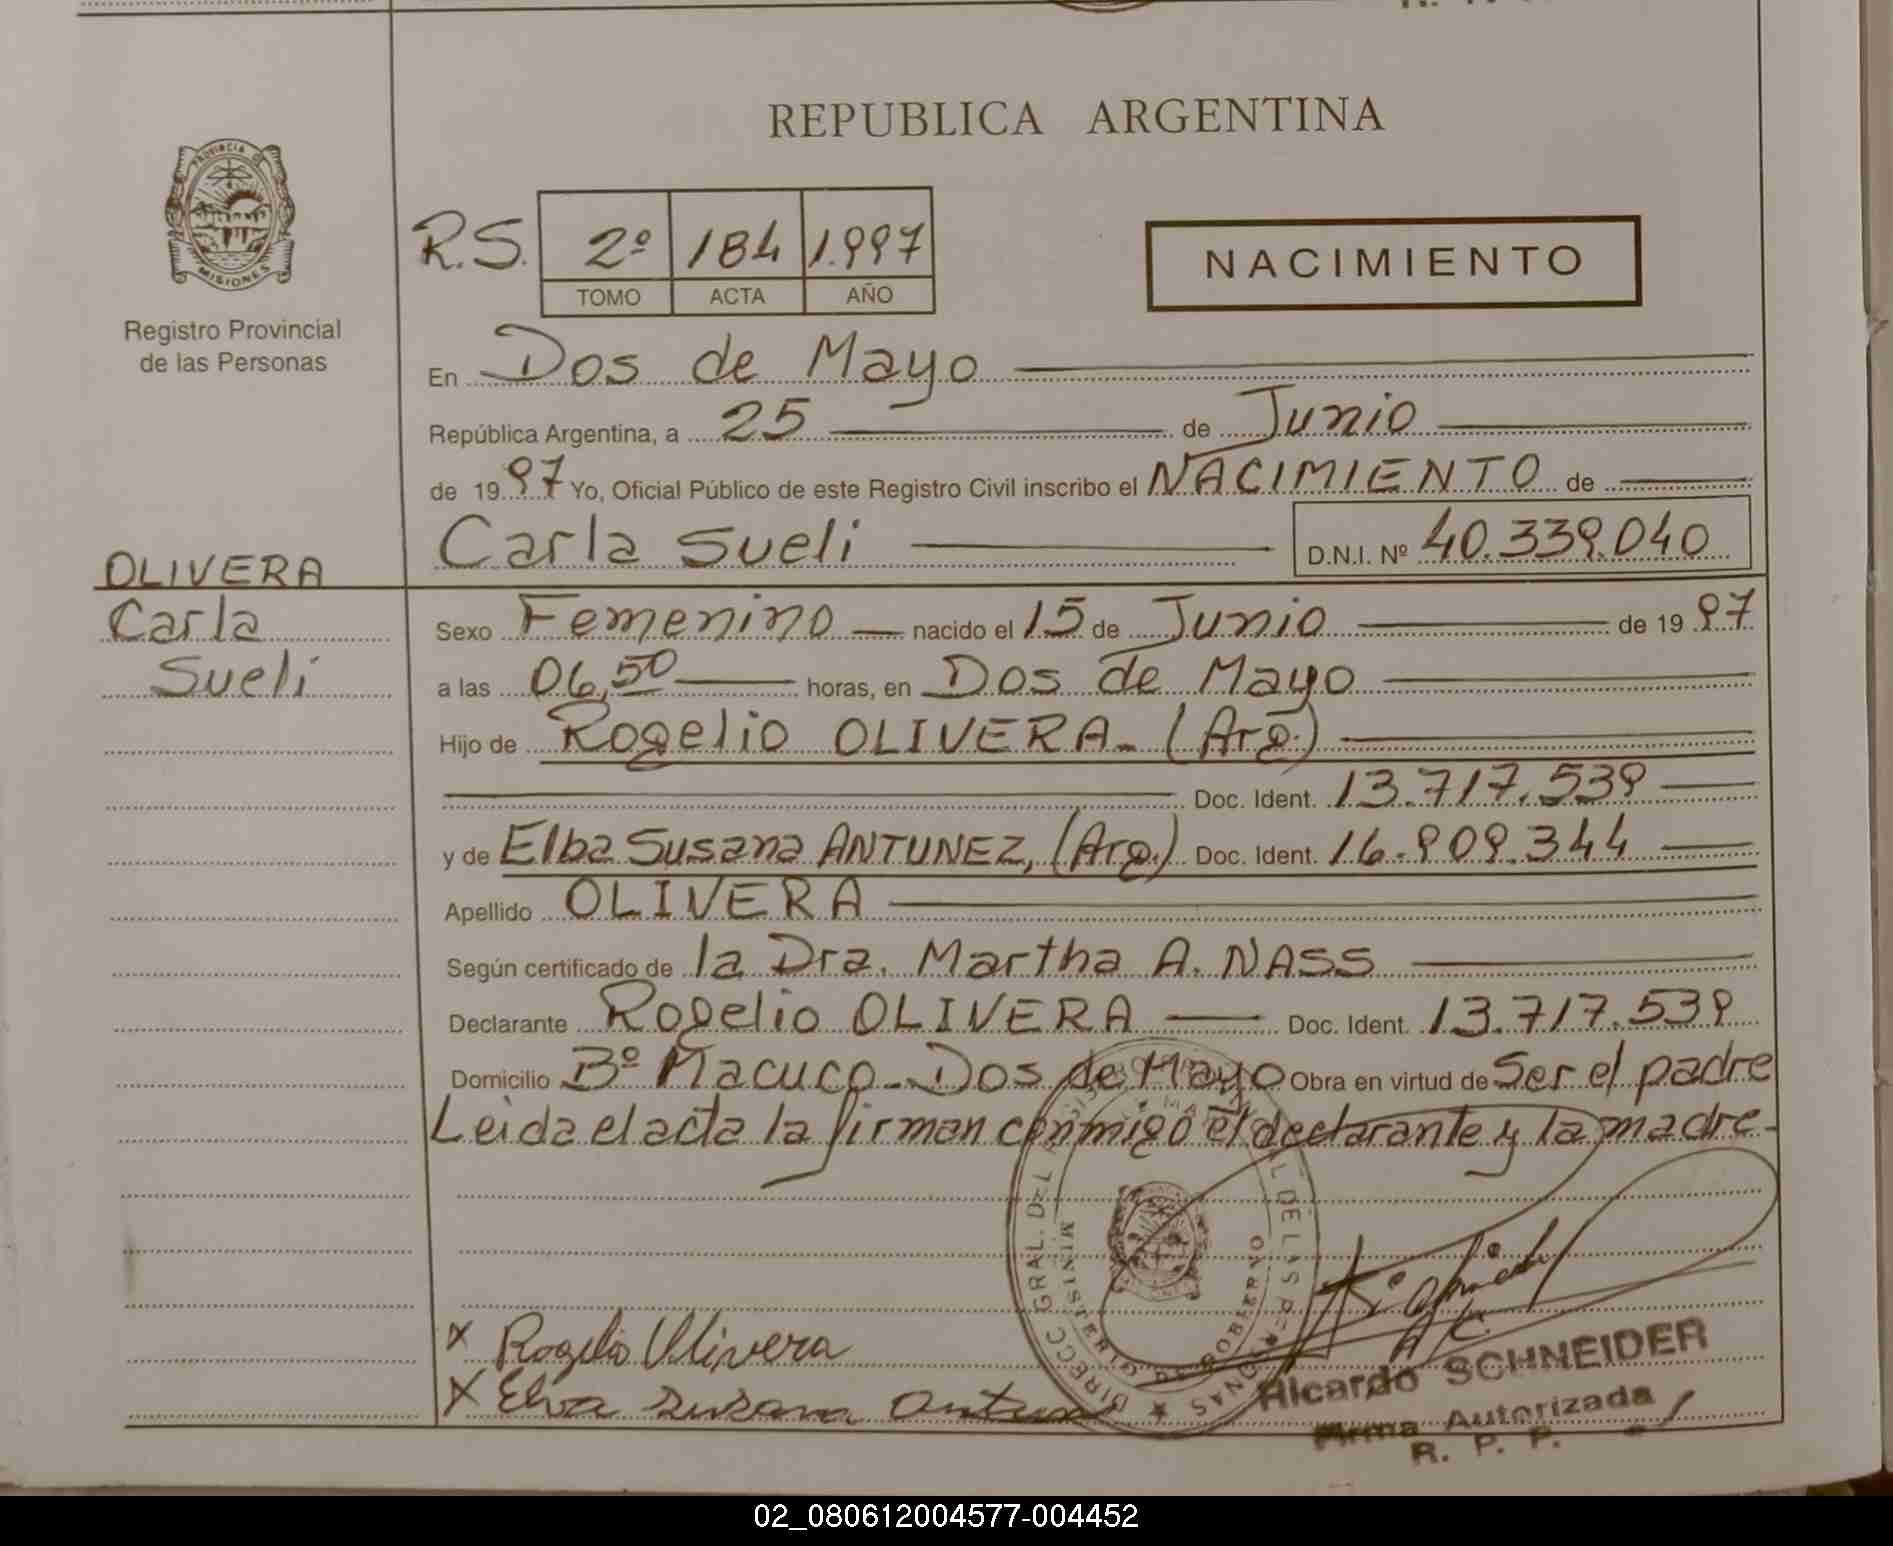 REPUBLICA ARGENTINA
PROVINCIA DE
MISIONES
Registro Provincial
de las Personas
R.S. 2º 184 1.997
TOMO ACTA AÑO
NACIMIENTO
En Dos de Mayo
República Argentina, a 25 de Junio
de 1997 Yo, Oficial Público de este Registro Civil inscribo el NACIMIENTO de
Carla Sueli D.N.I. Nº 40.339.040
OLIVERA
Carla
Sueli
Sexo Femenino nacido el 15 de Junio de 1997
a las 06,50 horas, en Dos de Mayo
Hijo de Rogelio OLIVERA. (Arg.)
Doc. Ident. 13.717.539
y de Elba Susana ANTUNEZ, (Arg.) Doc. Ident. 16.909.344
Apellido OLIVERA
Según certificado de la Dra. Martha A. NASS
Declarante Rogelio OLIVERA Doc. Ident. 13.717.539
Domicilio Bº Macuco - Dos de Mayo Obra en virtud de Ser el padre
Leida el acta la firman conmigo el declarante y la madre.
DIRECC. GRAL. DEL DE LAS PERSONAS
MINISTERIO GOBIERNO
x Rogelio Olivera
x Elva Susana
Ricardo SCHNEIDER
Firma Autorizada
R. P. P.
02_080612004577-004452